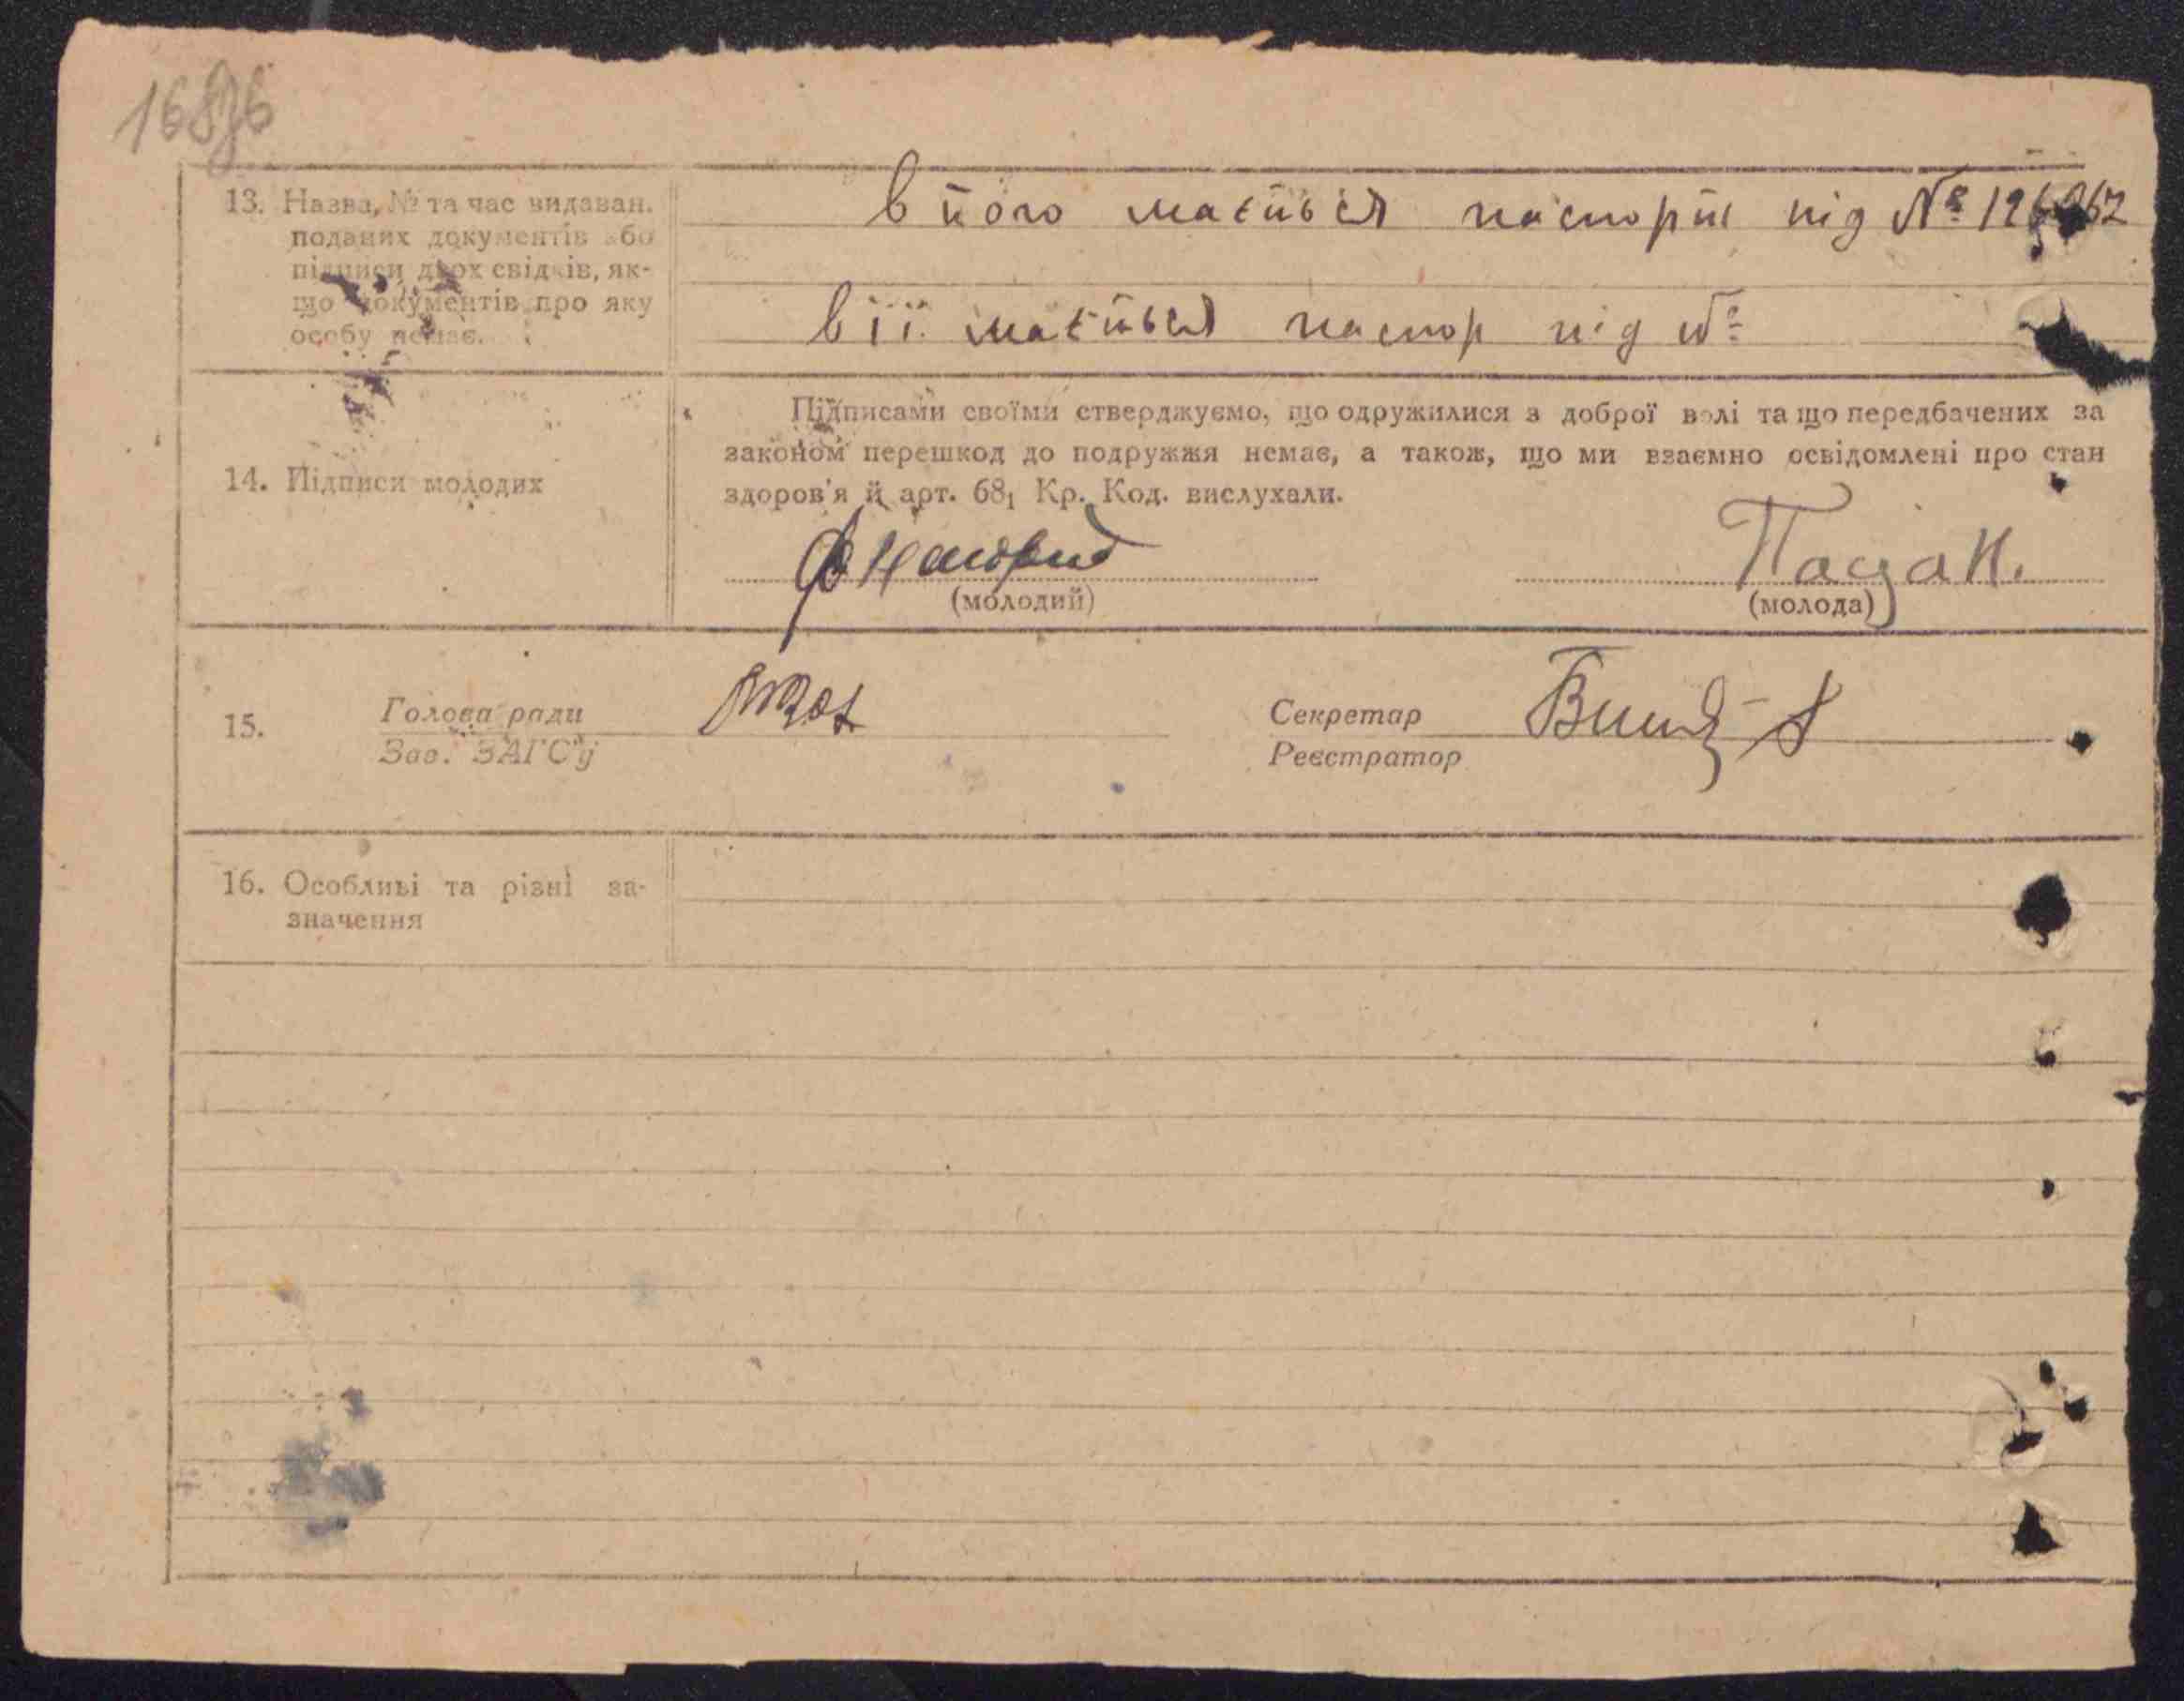 13. Назва, № та час видаван.
поданих документів або
підписи двох свідків, як-
що документів про яку
особу немає.
в його мається паспорт під №
в її мається паспор під №
14. Підписи молодих
Підписами своїми стверджуємо, що одружилися з доброї волі та що передбачених за
законом перешкод до подружжя немає, а також, що ми взаємно освідомлені про стан
здоров'я й арт. 68₁ Кр. Код. вислухали.
(молодий)
(молода)
15.
Голова ради
Зав. ЗАГС'у
Секретар
Реєстратор
16. Особливі та різні за-
значення